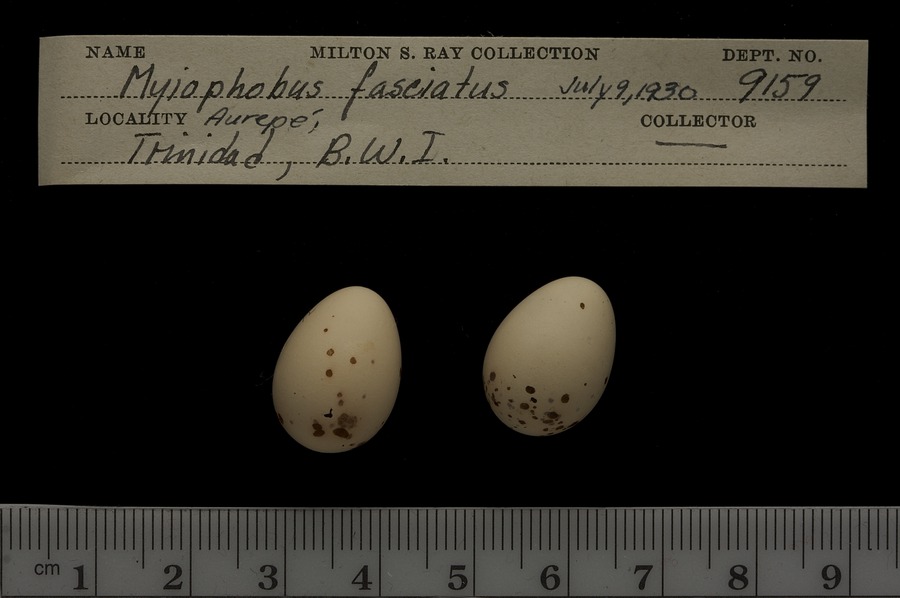 NAME MILTON S. RAY COLLECTION DEPT. NO.
Myiophobus fasciatus July 9, 1930 9159
LOCALITY Aurepé, COLLECTOR
Trinidad, B.W.I.
cm 1 2 3 4 5 6 7 8 9